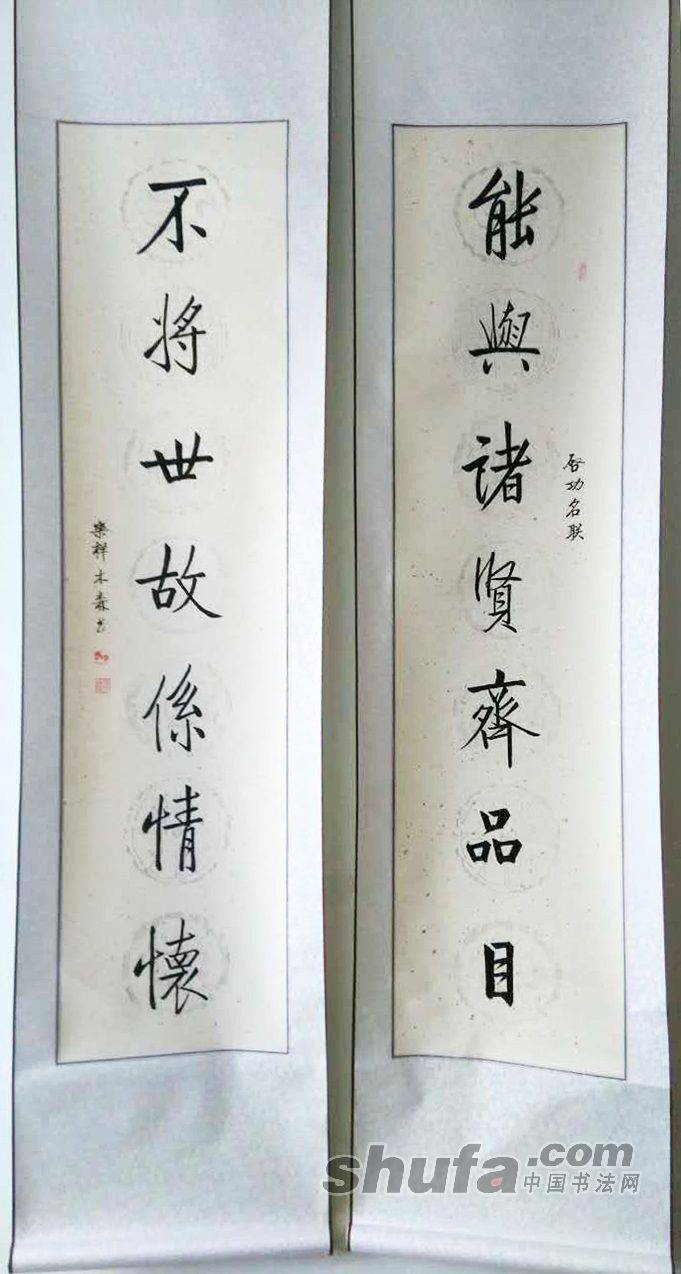 能與諸賢齊品目
啓功名联
不將世故係情懷
樂祥木森书
shufa.com
中国书法网